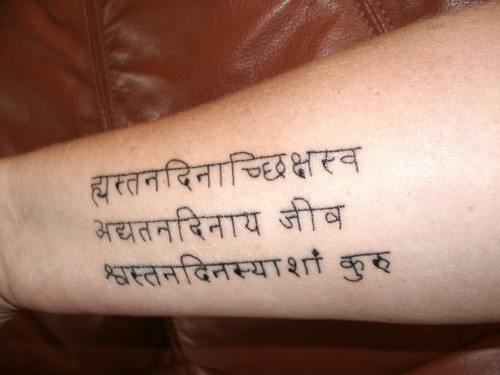 ह्यस्तनदिनाच्छिक्षस्व
अद्यतनदिनाय जीव
श्वस्तनदिनस्याशां कुरु